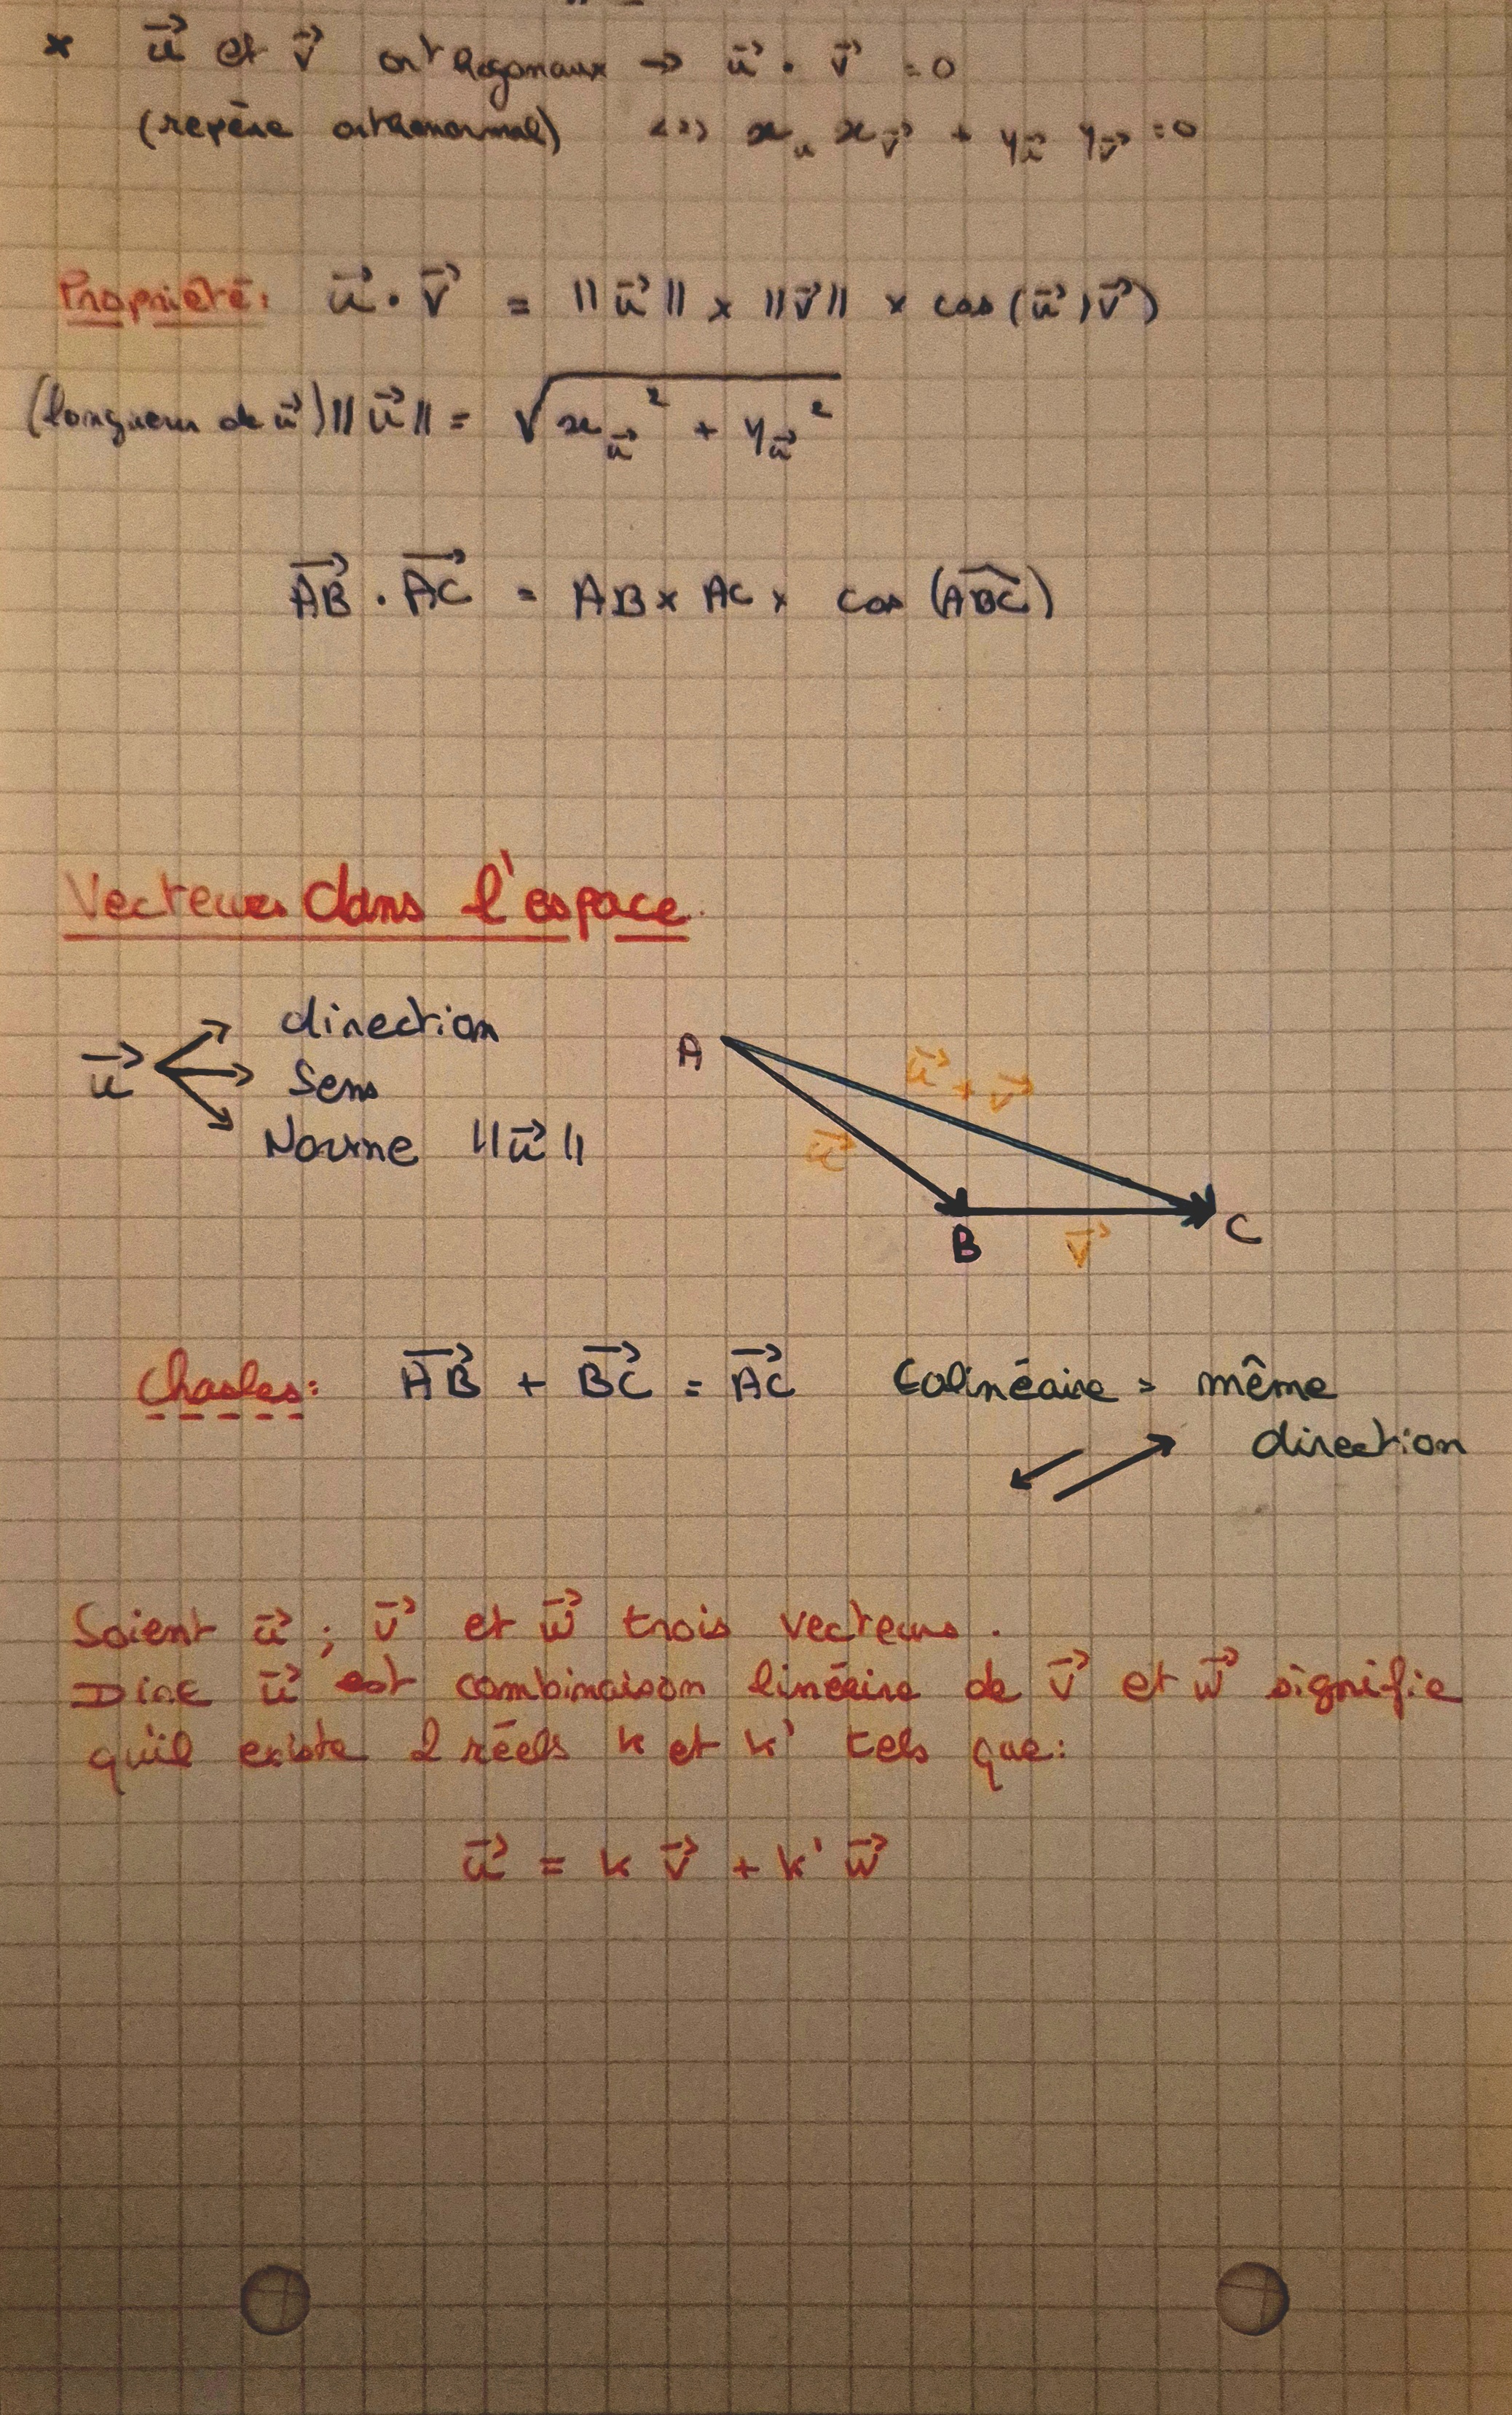 * u⃗ et v⃗ orthogonaux → u⃗ · v⃗ = 0
(repère orthonormal) <=> x_u x_v⃗ + y_u⃗ y_v⃗ = 0
Propriété: u⃗ · v⃗ = ||u⃗|| × ||v⃗|| × cos(u⃗, v⃗)
(longueur de u⃗) ||u⃗|| = √(x_u⃗² + y_u⃗²)
AB⃗ · AC⃗ = AB × AC × cos (ABC^)
Vecteurs dans l'espace
u⃗
direction
Sens
Norme ||u⃗||
A
u⃗ + v⃗
u⃗
B
v⃗
C
Chasles: AB⃗ + BC⃗ = AC⃗
Colinéaire = même
direction
Soient u⃗ ; v⃗ et w⃗ trois vecteurs.
Dire u⃗ est combinaison linéaire de v⃗ et w⃗ signifie
qu'il existe 2 réels k et k' tels que:
u⃗ = k v⃗ + k' w⃗